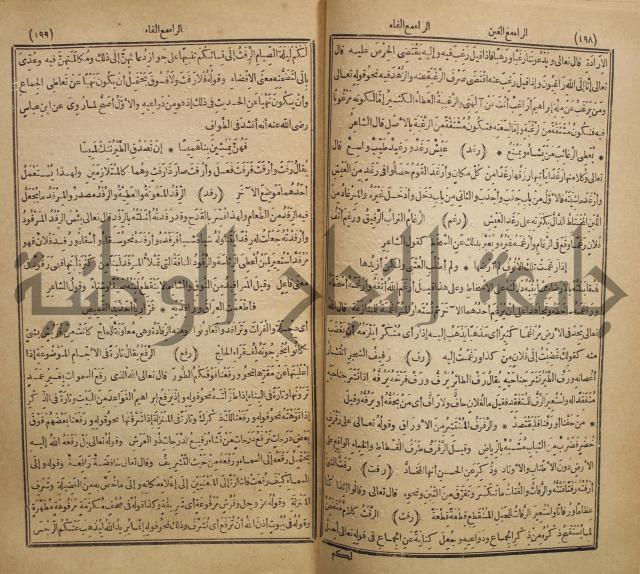 (١٩٨)
الراء مع الغين
الراء مع الفاء
الارادة قال تعالى ويدعوننا رغبا ورهبا فاذا قيل رغب فيه واليه يقتضى الحرص عليه قال
تعالى انا الى الله راغبون واذا قيل رغب عنه اقتضى صرف الرغبة عنه والزهد فيه نحو قوله تعالى
ومن يرغب عن ملة ابراهيم أراغب أنت عن آلهتى والرغبة العطاء الكثير اما لكونه مرغوبا
فيه فتكون مشتقة من الرغبة واما لسعته فتكون مشتقة من الرغبة بالاصل قال الشاعر
* يعطى الرغائب من يشاء ويمنع * (رغد) عيش رغد ورغيد طيب واسع قال
تعالى وكلا منها رغدا يأتيها رزقها رغدا من كل مكان وأرغد القوم حصلوا فى رغد من العيش
وأرغد ماشيته فالاول من باب جدب وأجدب والثانى من باب دخل وأدخل غيره والمرغاد من
اللبن المختلط الدال بكثرته على رغد العيش (رغم) الرغام التراب الرقيق ورغم أنف
فلان رغما وقع فى الرغام وأرغمه غيره ويعبر بذلك عن السخط كقول الشاعر
اذا رغمت تلك الانوف لم أرضها * ولم أطلب العتبى ولكن أزيدها
تعالى يجد فى الارض مراغما كثيرا أى مذهبا يذهب اليه اذا رأى منكرا يلزمه أن يغضب
منه كقولك غضبت الى فلان من كذا ورغمت اليه (رف) رفيف الشجر انتشار
أغصانه ورف الطير نشر جناحيه يقال رف الطائر يرف ورف فرخه يرفه اذا نشر جناحيه
متفقدا له واستعير الرف للتفقد فقيل ما لفلان حاف ولا راف أى من يحفه أو يرفه وقيل
* من حفنا أو رفنا فليقتصد * والرفرف المنتشر من الاوراق وقوله تعالى على رفرف
خضر فضرب من الثياب مشبه بالرياض وقيل الرفرف طرف الفسطاط والخباء الواقع على
الارض دون الاطناب والاوتاد وذكر عن الحسن أنها المخاد (رفت) رفت الشئ
أرفته رفتا فتته والرفات والفتات ما تكسر وتفرق من التبن ونحوه قال تعالى وقالوا أئذا كنا
عظاما ورفاتا واستعير الرفات للحبل المنقطع قطعة قطعة (رفث) الرفث كلام متضمن
لما يستقبح ذكره من ذكر الجماع ودواعيه وجعل كناية عن الجماع فى قوله تعالى أحل
لكم
الراء مع الفاء
(١٩٩)
لكم ليلة الصيام الرفث الى نسائكم تنبيها على جواز دعائهن الى ذلك ومكالمتهن فيه وعدى
بالى لتضمنه معنى الافضاء وقوله فلا رفث ولا فسوق يحتمل أن يكون نهيا عن تعاطى الجماع
وأن يكون نهيا عن الحديث فى ذلك اذ هو من دواعيه والاول أصح لما روى عن ابن عباس
رضى الله عنه انه أنشد فى الطواف
فهن يمشين بنا هميسا * ان تصدق الطير ننك لميسا
يقال رفث وأرفث فرفث فعل وأرفث صار ذا رفث وهما كالمتلازمين ولهذا يستعمل
أحدهما موضع الآخر (رفد) الرفد المعونة والعطية والرفد مصدر والمرفد ما يجعل
فيه الرفد من الطعام ولهذا فسر بالقدح وقد رفدته أنلته بالرفد قال تعالى بئس الرفد المرفود
وأرفدته جعلت له رفدا يتناوله شيأ فشيأ فرفده وأرفده نحو سقاه وأسقاه ورفد فلان فهو
(رفع) الرفع يقال تارة فى الاجسام الموضوعة اذا
أعليتها عن مقرها نحو ورفعنا فوقكم الطور قال تعالى الله الذى رفع السموات بغير عمد
ترونها وتارة فى البناء اذا طولته نحو قوله واذ يرفع ابراهيم القواعد من البيت وتارة فى الذكر
اذا نوهته نحو قوله ورفعنا لك ذكرك وتارة فى المنزلة اذا شرفتها نحو قوله ورفعنا بعضهم فوق
بعض درجات نرفع درجات من نشاء رفيع الدرجات ذو العرش وقوله تعالى بل رفعه الله اليه
يحتمل رفعه الى السماء ورفعه من حيث التشريف وقال تعالى خافضة رافعة وقوله والى
السماء كيف رفعت فاشارة الى المعنيين الى اعلاء مكانه والى ما خص به من الفضيلة وشرف
المنزلة وقوله عز وجل وفرش مرفوعة أى شريفة وكذا قوله فى صحف مكرمة مرفوعة مطهرة
وقوله فى بيوت أذن الله أن ترفع أى تشرف وذلك نحو قوله انما يريد الله ليذهب عنكم الرجس
جامعة النجاح الوطنية